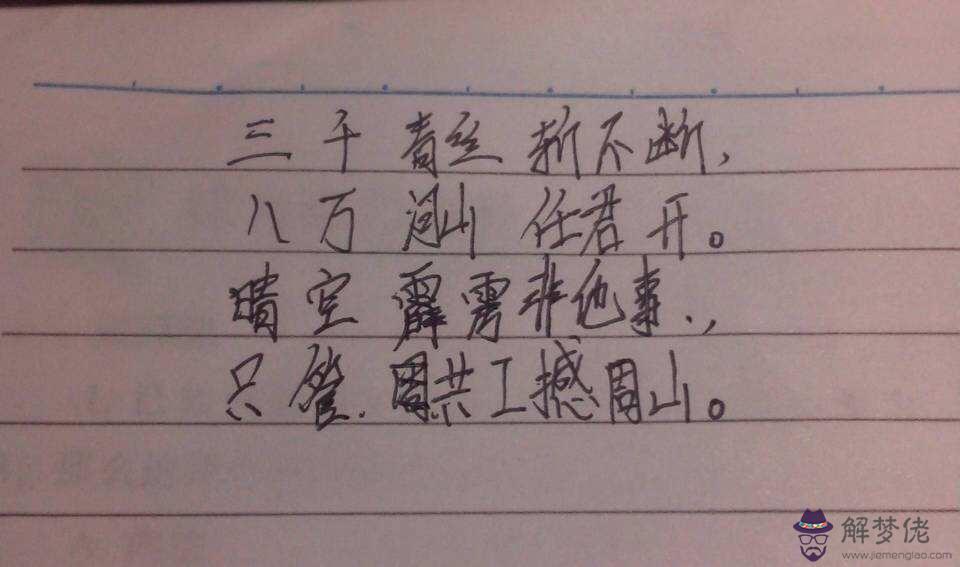 三千青丝斩不断,
八万山任君开。
晴空霹雳非他事.,
只管.共工撼周山。
解梦佬
www.jiemenglao.com